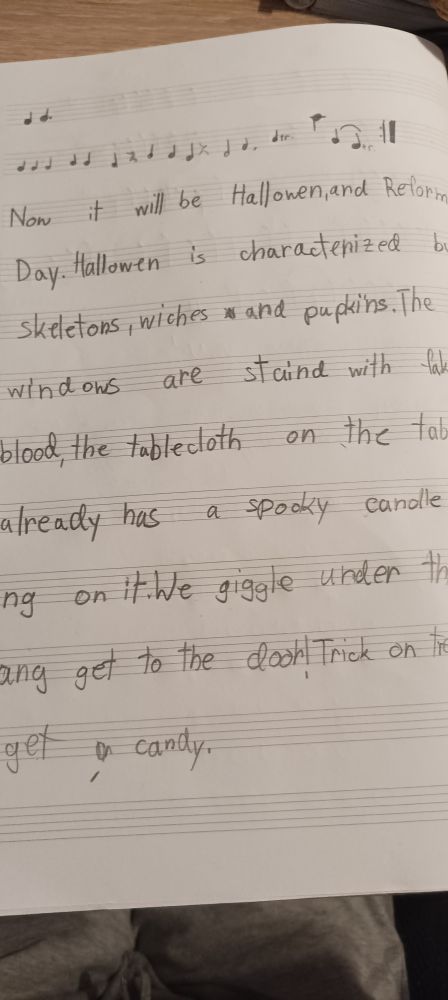 Now it will be Hallowen, and Reform
Day. Hallowen is characterized b
skeletons, wiches and pupkins. The
windows are staind with fak
blood, the tablecloth on the tab
already has a spooky candle
ng on it. We giggle under th
ang get to the dooh! Trick on tre
get candy.